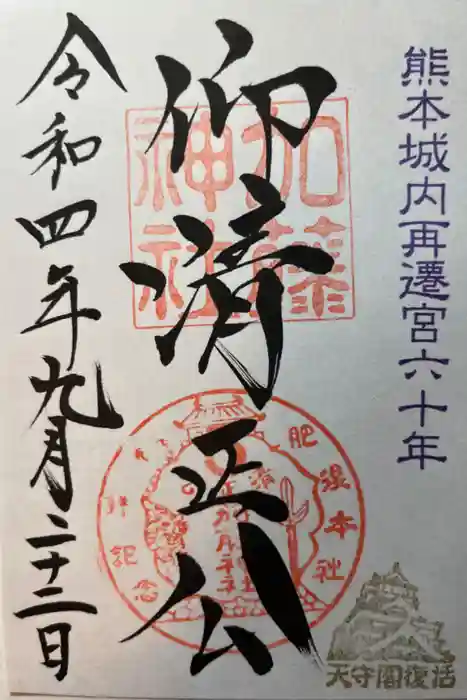 熊本城内再遷宮六十年
仰清正公
加藤神社
令和四年九月二十二日
天守閣復活